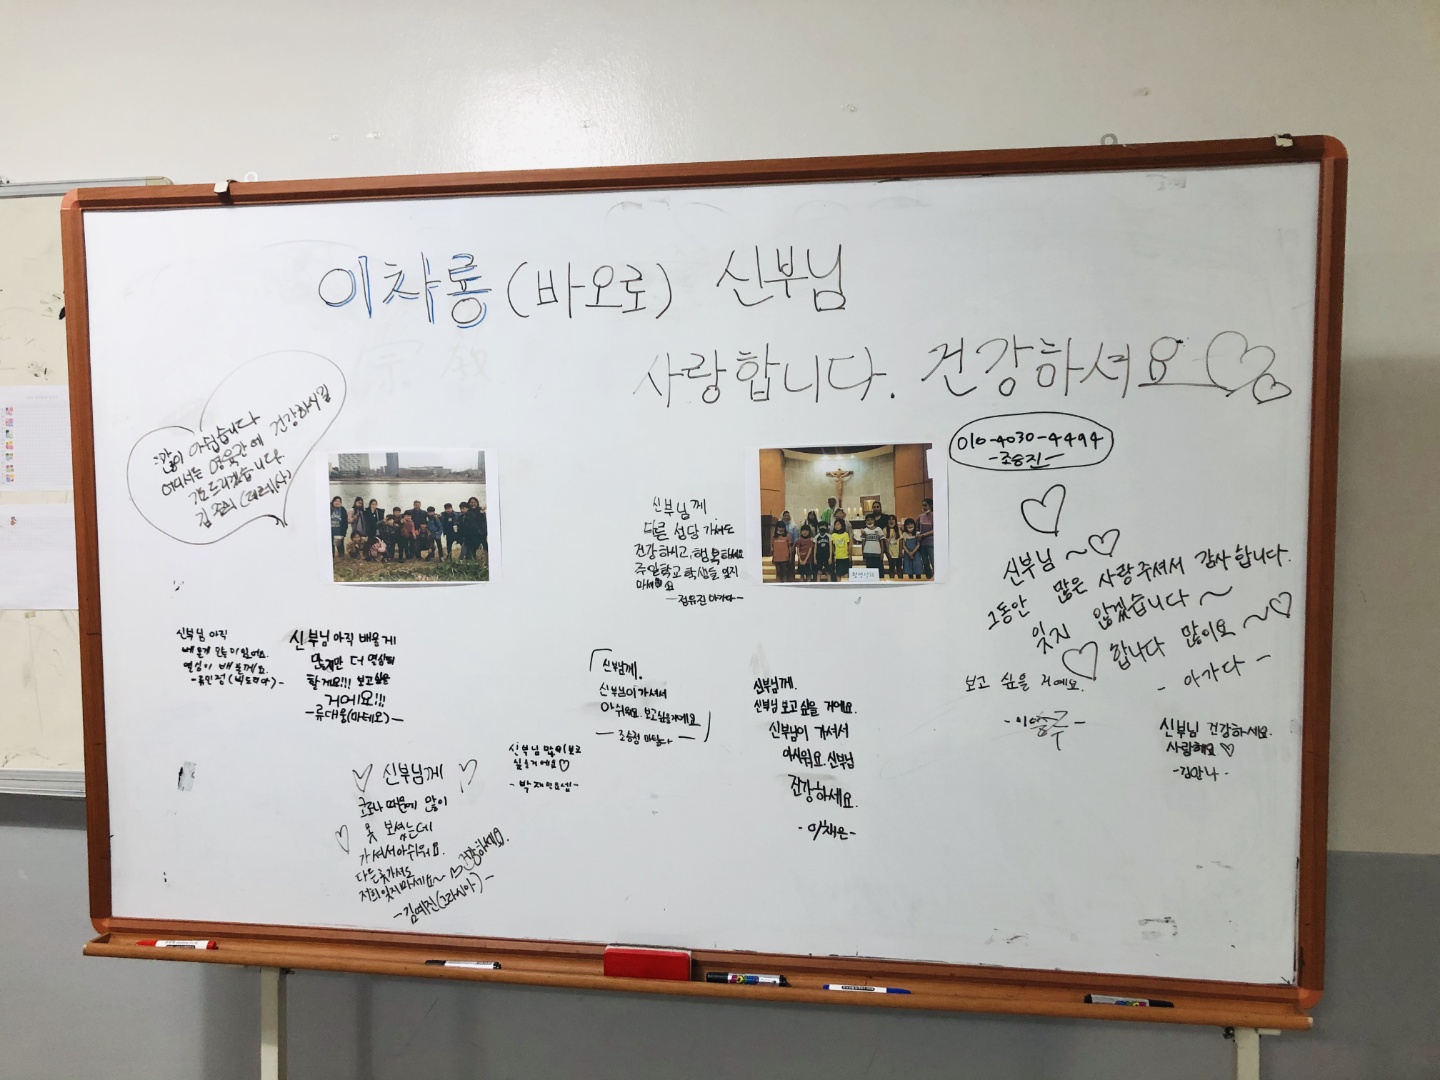 이차룡 (바오로) 신부님
사랑합니다. 건강하셔요
많이 아쉽습니다
어디서든 영육간에 건강하시길
기도드리겠습니다.
김 (데레사)
010-4030-4494
-조승진-
신부님께.
다른 성당 가셔도
건강하시고, 행복하세요
주일학교 학생들 잊지
마세요
-정유진 아가다-
신부님~♡
그동안 많은 사랑 주셔서 감사합니다.
잊지 않겠습니다~
♡합니다 많이요~♡
- 아가다 -
신부님 아직
배울게 많이 있어요.
열심히 배울께요.
-류민정(빅토리아)-
신부님 아직 배울게
많지만 더 열심히
할게요!!! 보고싶을
거에요!!!
-류대울(마테오)-
신부님께.
신부님이 가셔서
아쉬워요. 보고싶을거에요
- 조승정 -
신부님께.
신부님 보고 싶을 거에요.
신부님이 가셔서
아쉬워요. 신부님
건강하세요.
-이채은-
보고 싶을 거예요.
신부님 건강하세요.
사랑해요 ♡
-김안나-
신부님 많이 보고
싶을거에요♡
♡ 신부님께 ♡
코로나 때문에 많이
못 보셨는데
가셔서 아쉬워요.
다른곳 가셔도
저희 잊지마세요~ 건강하세요.
-김예진(그라시아)-